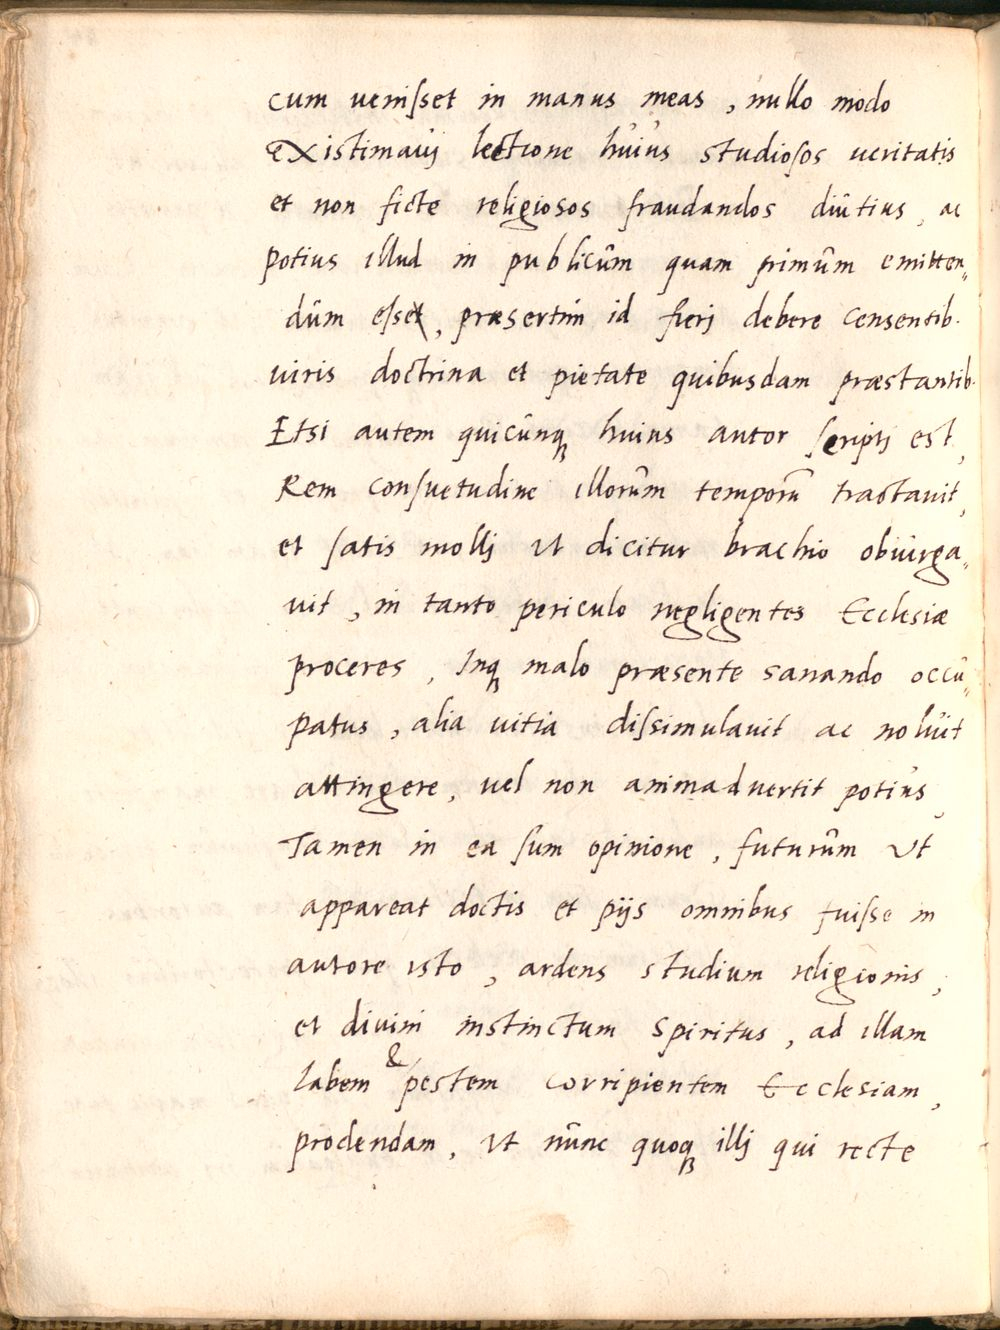 cum veniſset in manus meas, nullo modo
existimavij lectione huius studioſos veritatis
et non ficte religiosos fraudandos diutius, ac
potius illud in publicum quam primum emitten„
dum eſset, præsertim id fierj debere censentib.
viris doctrina et pietate quibusdam præstantib.
Etsi autem quicunq huius autor ſcriptj est,
Rem conſuetudine illorum temporũ tractavit,
et ſatis mollj ut dicitur brachio obiurga„
vit, in tanto periculo negligentes Ecclesiæ
proceres, Inq malo præsente sanando occu„
patus, alia vitia diſsimulavit ac noluit
attingere, vel non animadvertit potius,
Tamen in ea ſum opinione, futurum ut
appareat doctis et pijs omnibus fuiſse in
autore isto, ardens studium religionis,
et divini instinctum Spiritus, ad illam
labem & pestem corripientem Ecclesiam,
prodendam, ut nunc quoq illj qui recte